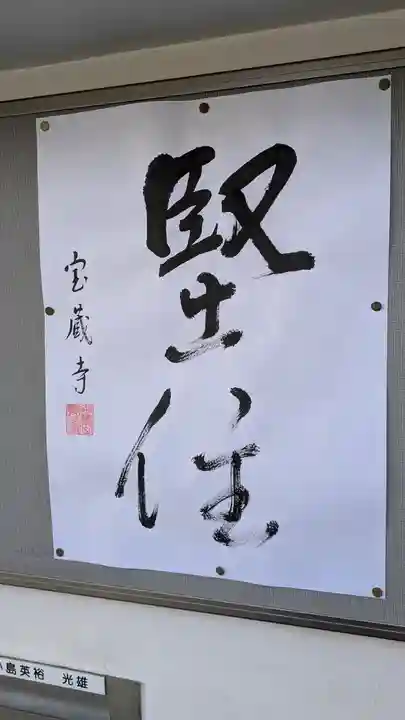 堅住
宝蔵寺
島英裕 光雄